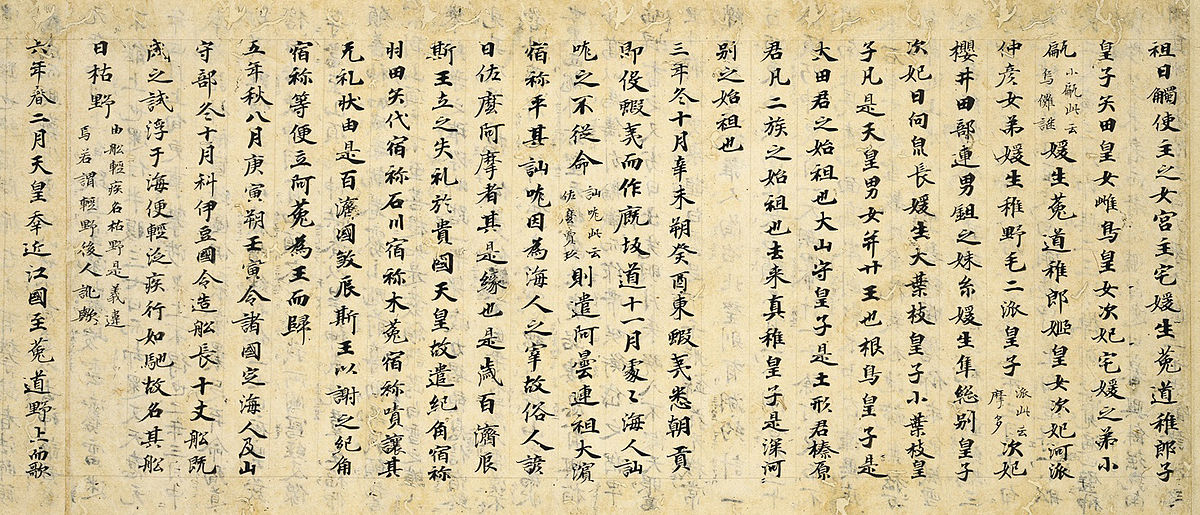 祖日觸使主之女宮主宅媛生菟道稚郎子
皇子矢田皇女雌鳥皇女次妃宅媛之弟小
甂小甂此云烏儺謎媛生菟道稚郎姬皇女次妃河派
仲彦女弟媛生稚野毛二派皇子派此云摩多次妃
櫻井田部連男鉏之妹糸媛生隼総別皇子
次妃日向泉長媛生大葉枝皇子小葉枝皇
子凡是天皇男女并廿王也根鳥皇子是
太田君之始祖也大山守皇子是土形君榛原
君凡二族之始祖也去来真稚皇子是深河
別之始祖也
三年冬十月辛未朔癸酉東蝦夷悉朝貢
即役蝦夷而作厩坂道十一月處〻海人訕
哤之不從命訕哤此云佐麼賣玖則遣阿曇連祖大濱
宿祢平其訕哤因為海人之宰故俗人諺
曰佐麼阿摩者其是縁也是歳百濟辰
斯王立之失礼於貴國天皇故遣紀角宿祢
羽田矢代宿祢石川宿祢木菟宿祢嘖讓其
无礼狀由是百濟國敘辰斯王以謝之紀角
宿祢等便立阿菟為王而歸
五年秋八月庚寅朔壬寅令諸國定海人及山
守部冬十月科伊豆國令造舩長十丈舩既
成之試浮于海便輕泛疾行如馳故名其舩
曰枯野由舩輕疾名枯野是義違焉若謂輕野後人訛歟
六年春二月天皇幸近江國至菟道野上而歌